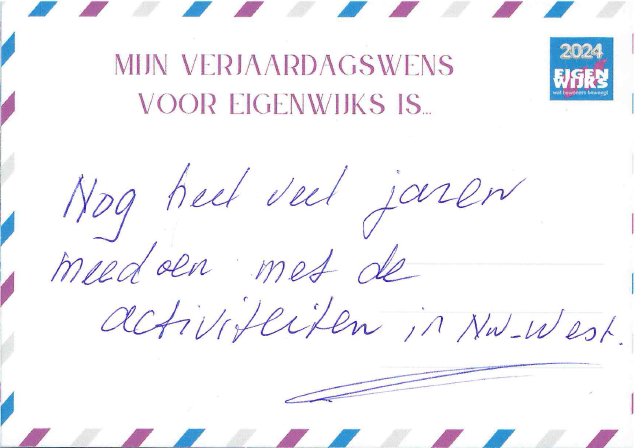 MIJN VERJAARDAGSWENS
VOOR EIGENWIJKS IS...
2024
EIGEN
WIJKS
wat bewoners beweegt
Nog heel veel jaren
meedoen met de
activiteiten in NW-West.